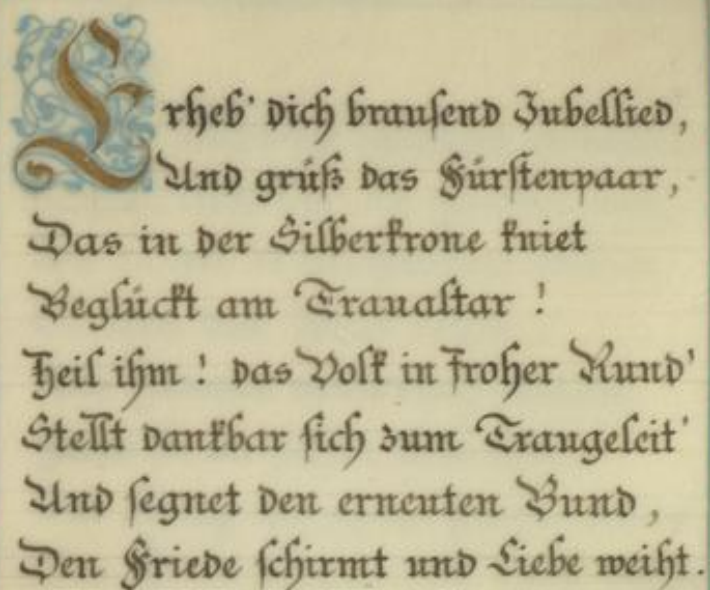 Erheb' dich brausend Jubellied,
Und grüß das Fürstenpaar,
Das in der Silberkrone kniet
Beglückt am Traualtar!
Heil ihm! das Volk in froher Rund'
Stellt dankbar sich zum Traugeleit'
Und segnet den erneuten Bund,
Den Friede schirmt und Liebe weiht.